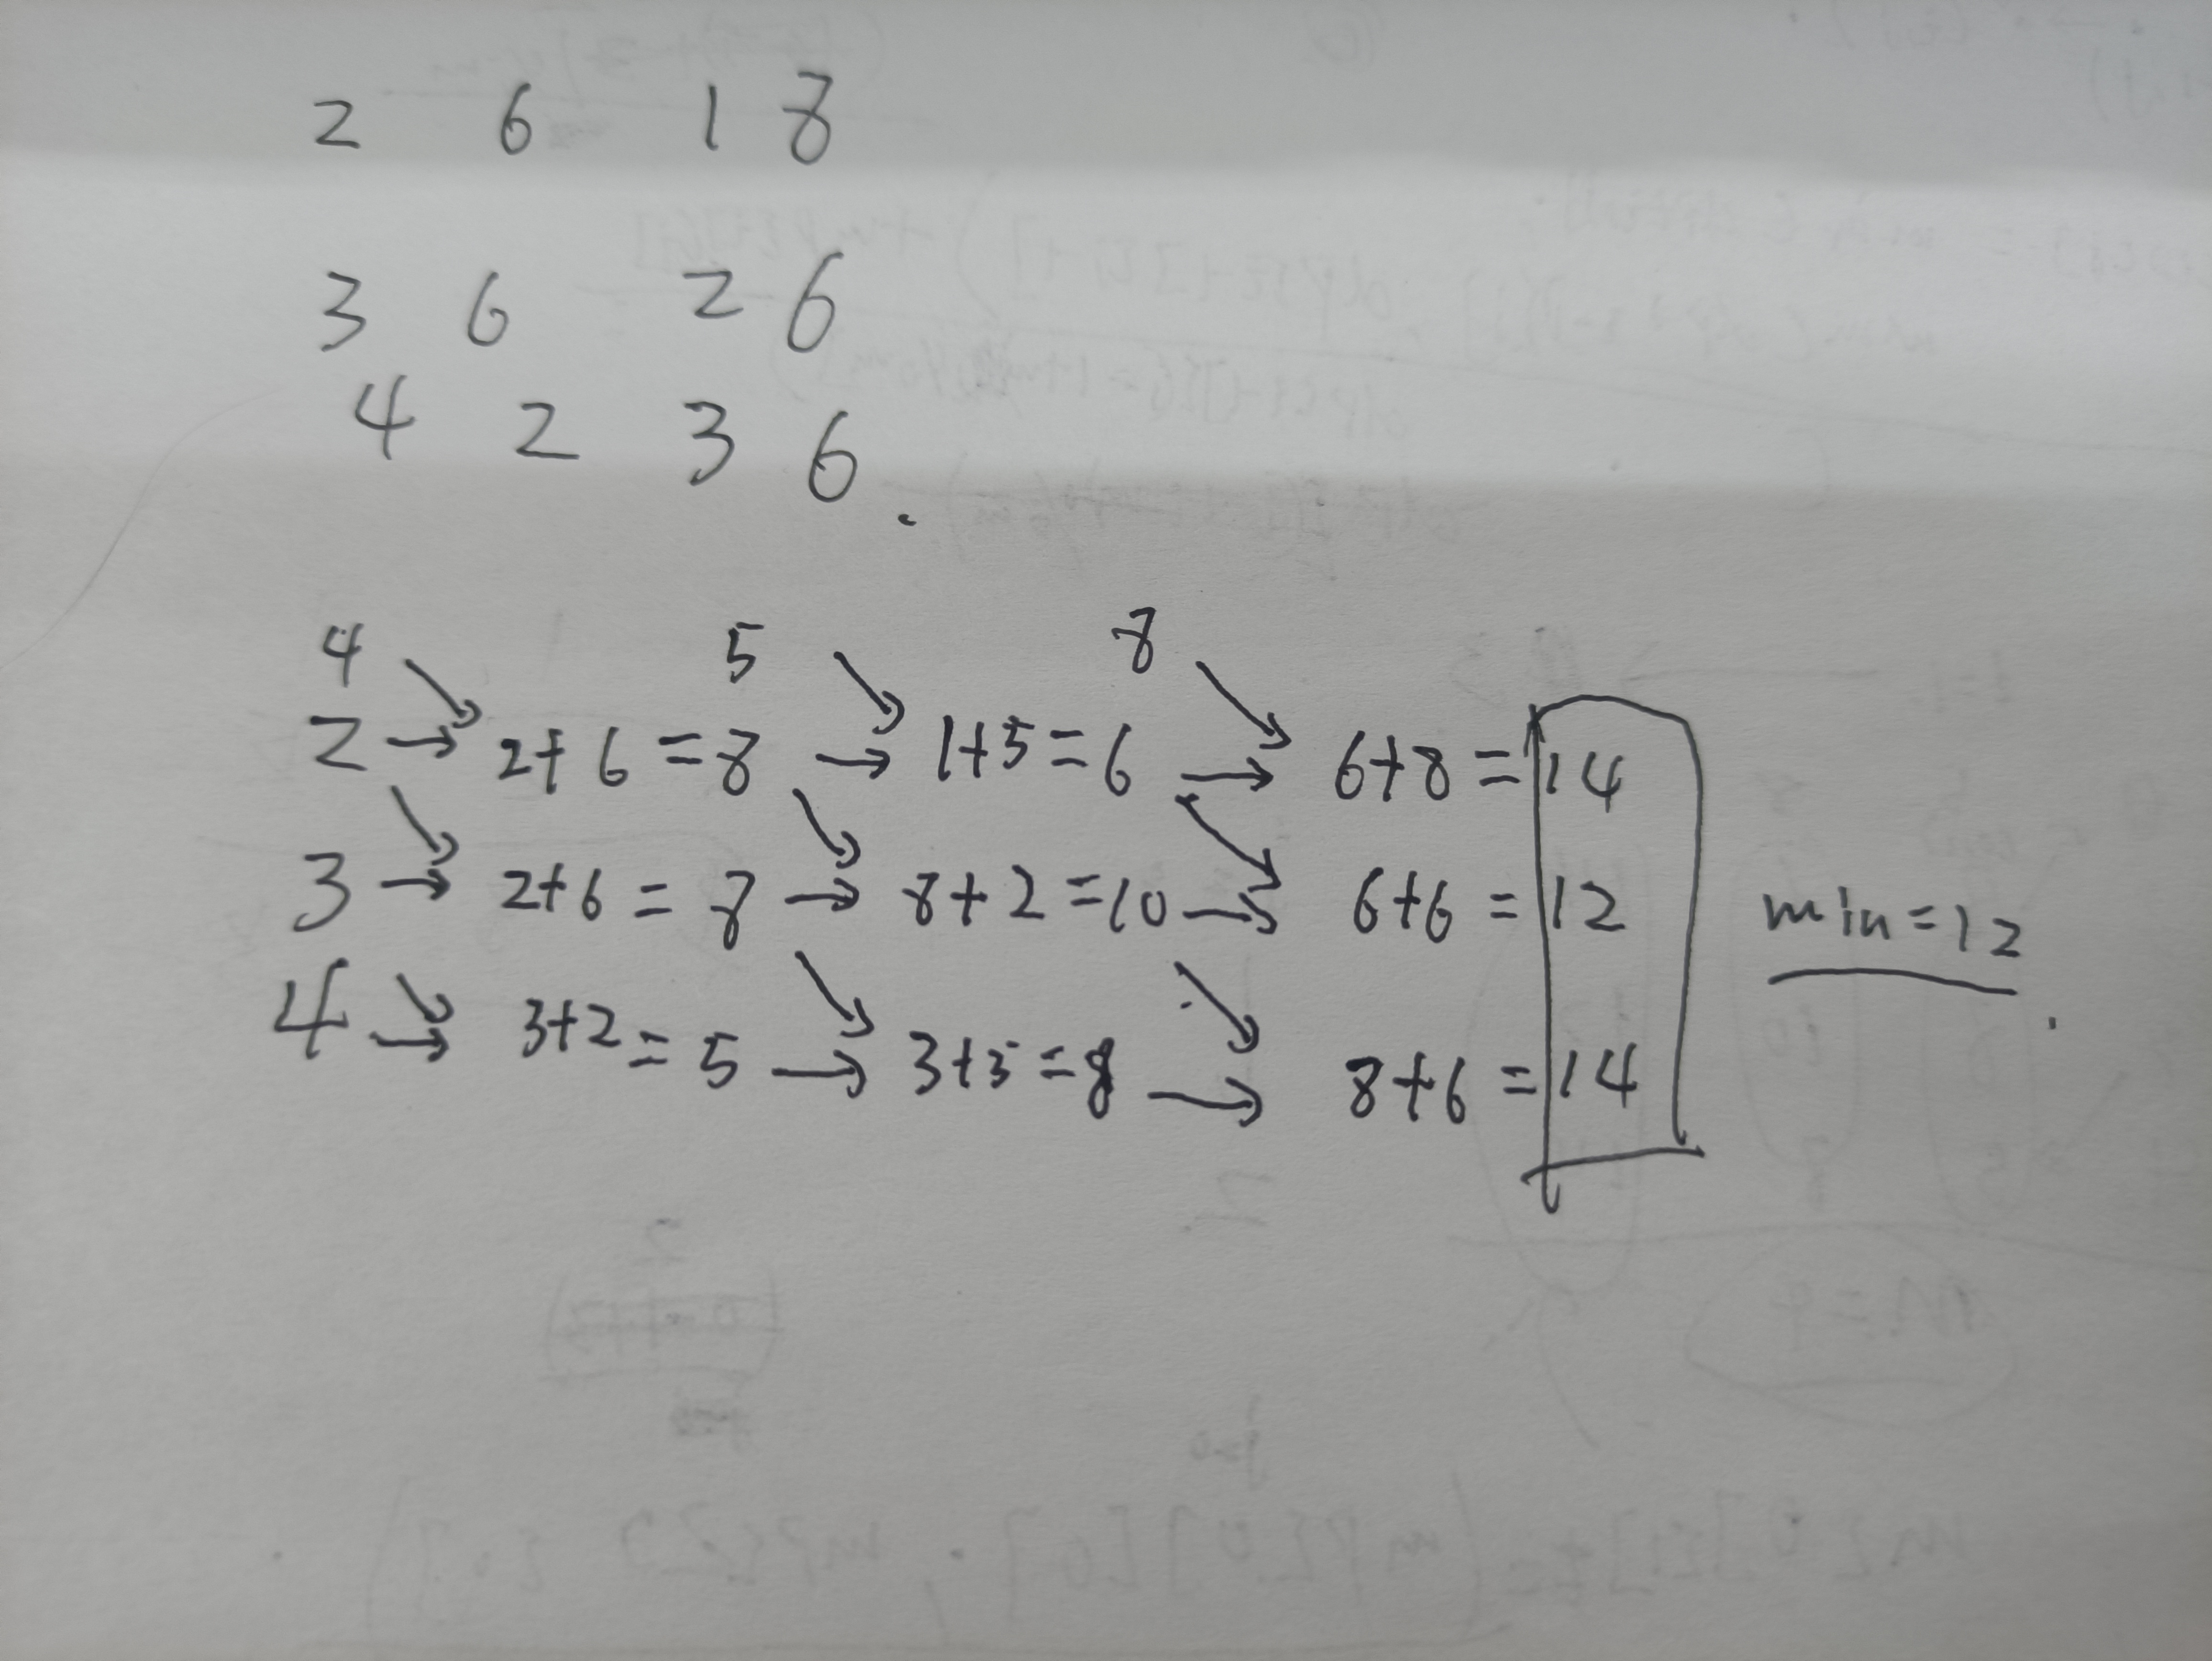 2 6 1 8
3 6 2 6
4 2 3 6 .
4 5 8
2 → 2+6=8 → 1+5=6 → 6+8=14
3 → 2+6=8 → 8+2=10 → 6+6=12 min=12.
4 → 3+2=5 → 3+5=8 → 8+6=14